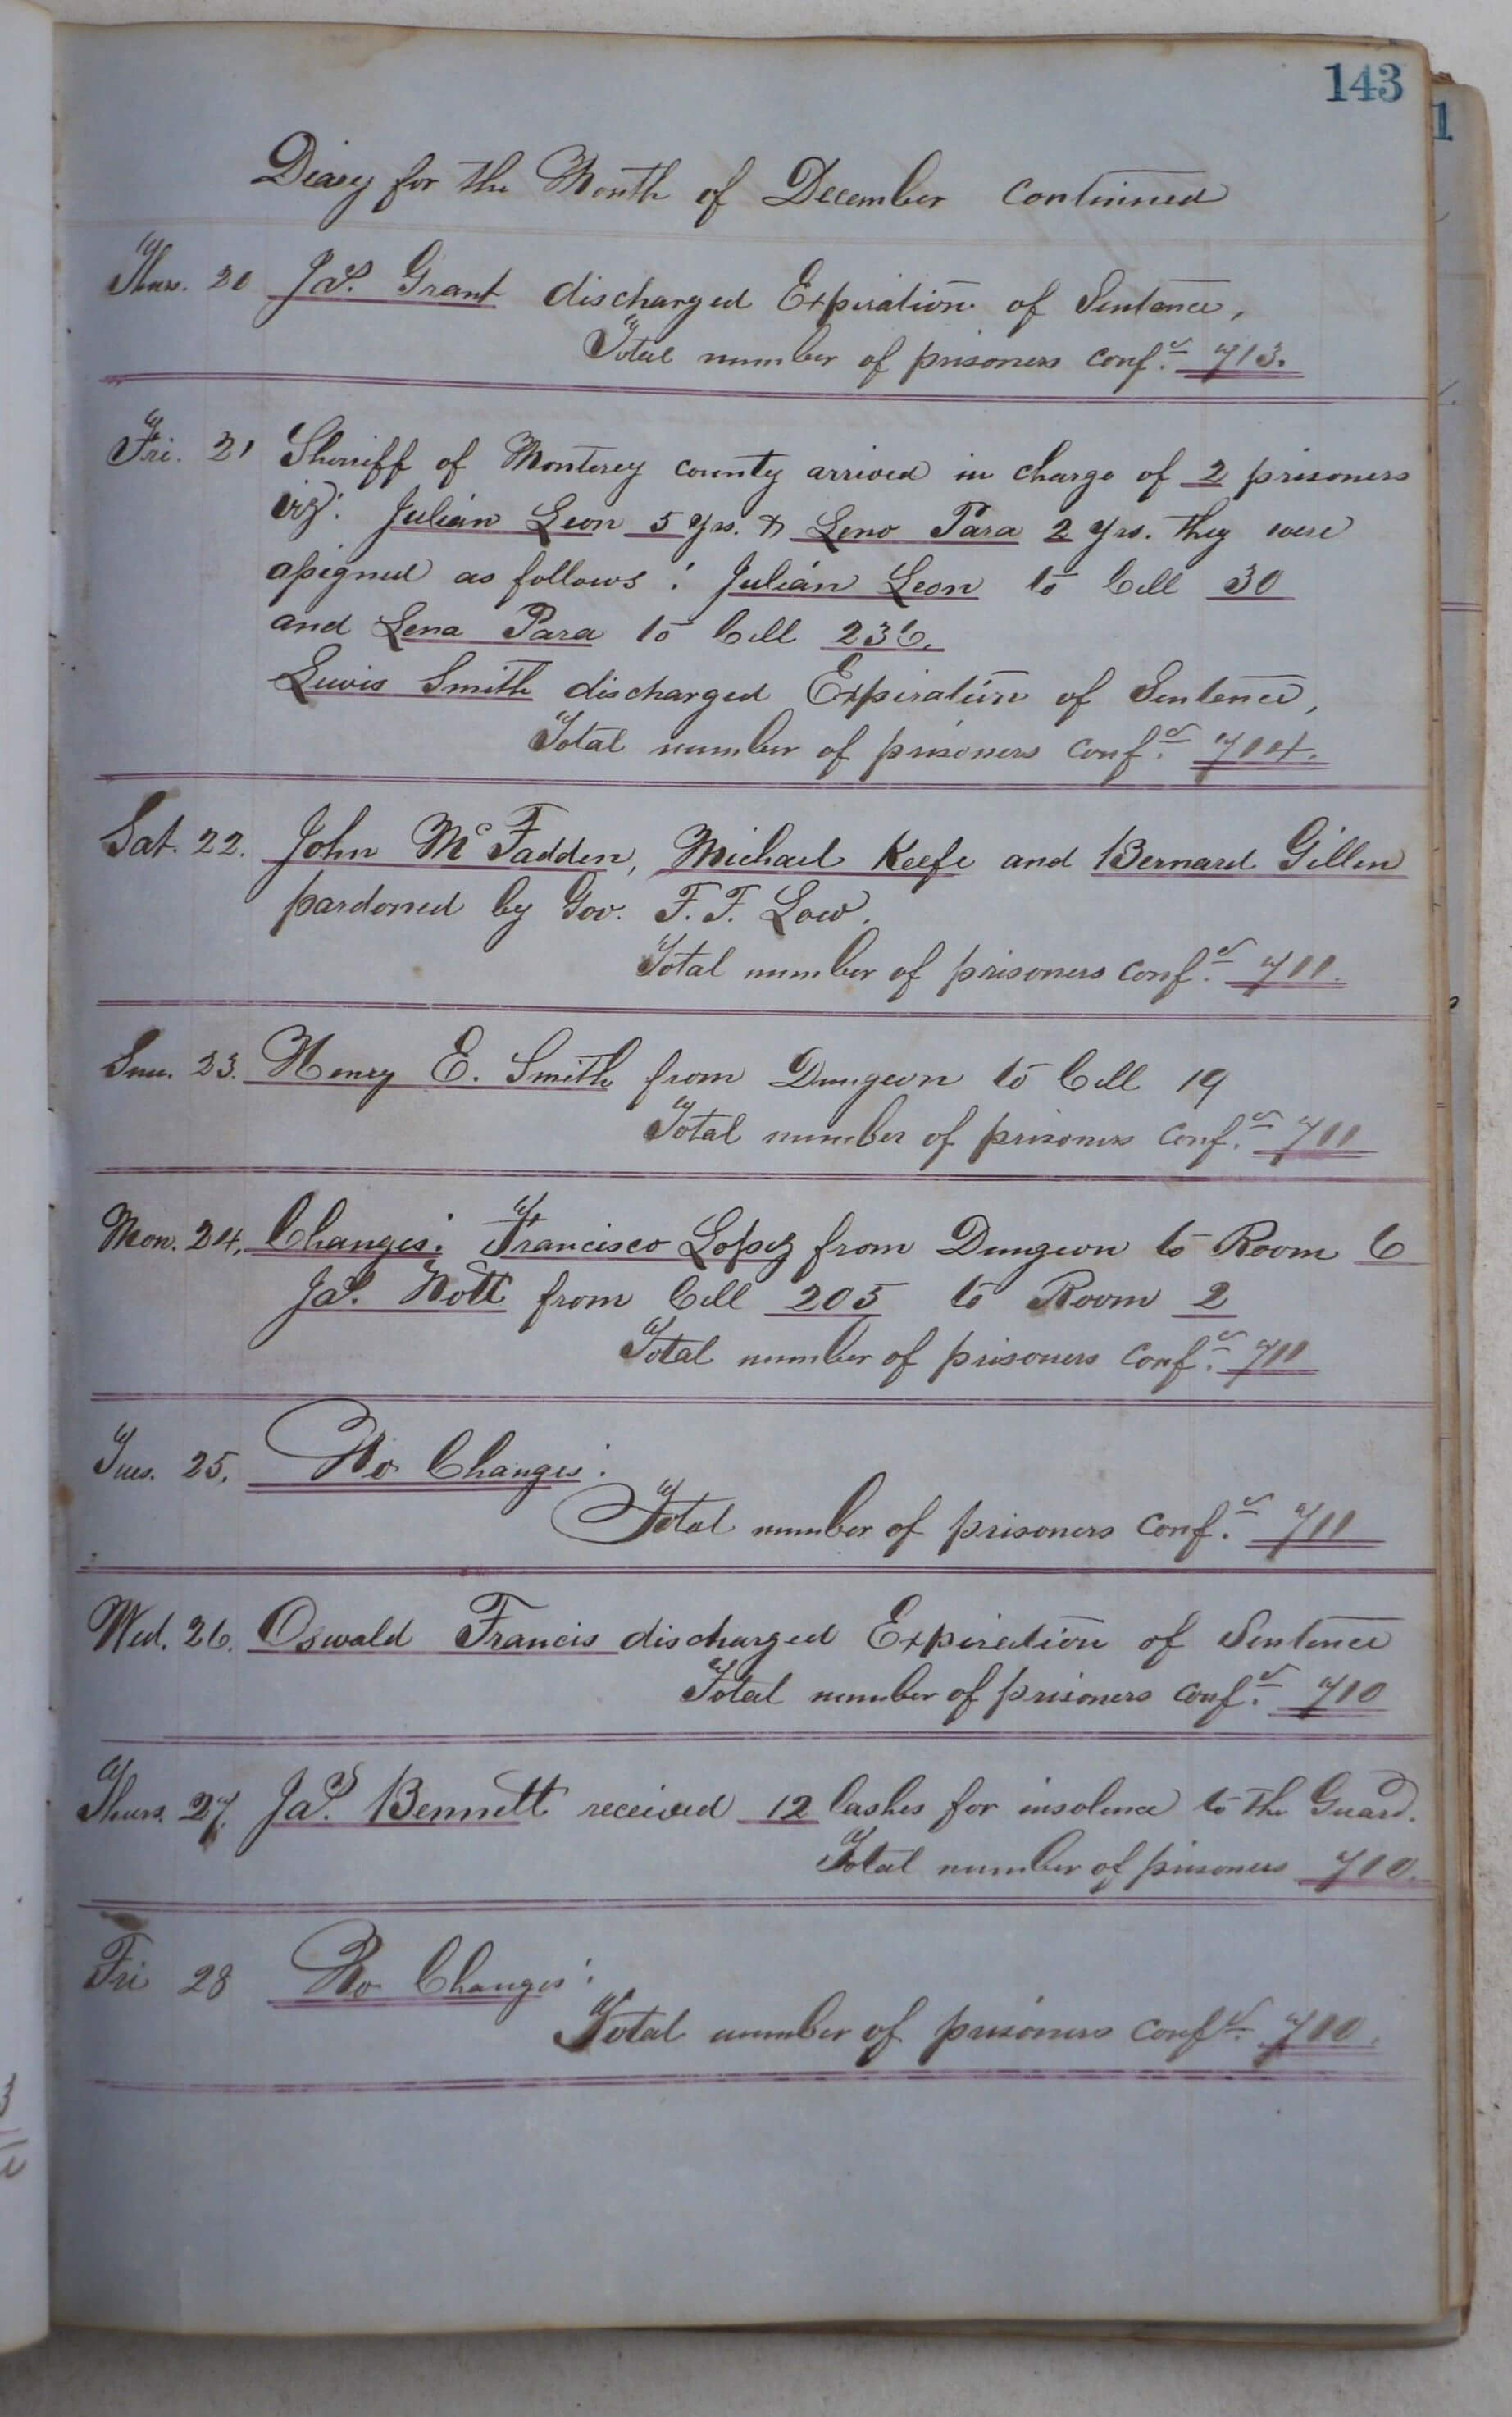 143
Diary for the Month of December continued
Thurs. 20 Jas. Grant discharged Expiration of Sentence,
Total number of prisoners conf.d 713.
Fri. 21 Sheriff of Monterey county arrived in charge of 2 prisoners
viz: Julián Leon 5 yrs. & Leno Para 2 yrs. they were
assigned as follows: Julián Leon to Cell 30
and Lena Para to Cell 236.
Lewis Smith discharged Expiration of Sentence,
Total number of prisoners conf.d 714.
Sat. 22. John McFadden, Michael Keefe and Bernard Gillen
pardoned by Gov. F. F. Low.
Total number of prisoners conf.d 711.
Sun. 23. Henry E. Smith from Dungeon to Cell 19
Total number of prisoners conf.d 711
Mon. 24. Changes: Francisco Lopez from Dungeon to Room 6
Jas. Nott from Cell 205 to Room 2
Total number of prisoners conf.d 711
Tues. 25. No Changes:
Total number of prisoners conf.d 711
Wed. 26. Oswald Francis discharged Expiration of Sentence
Total number of prisoners conf.d 710
Thurs. 27. Jas. Bennett received 12 lashes for insolence to the Guard.
Total number of prisoners 710.
Fri 28 No Changes:
Total number of prisoners conf.d 710.